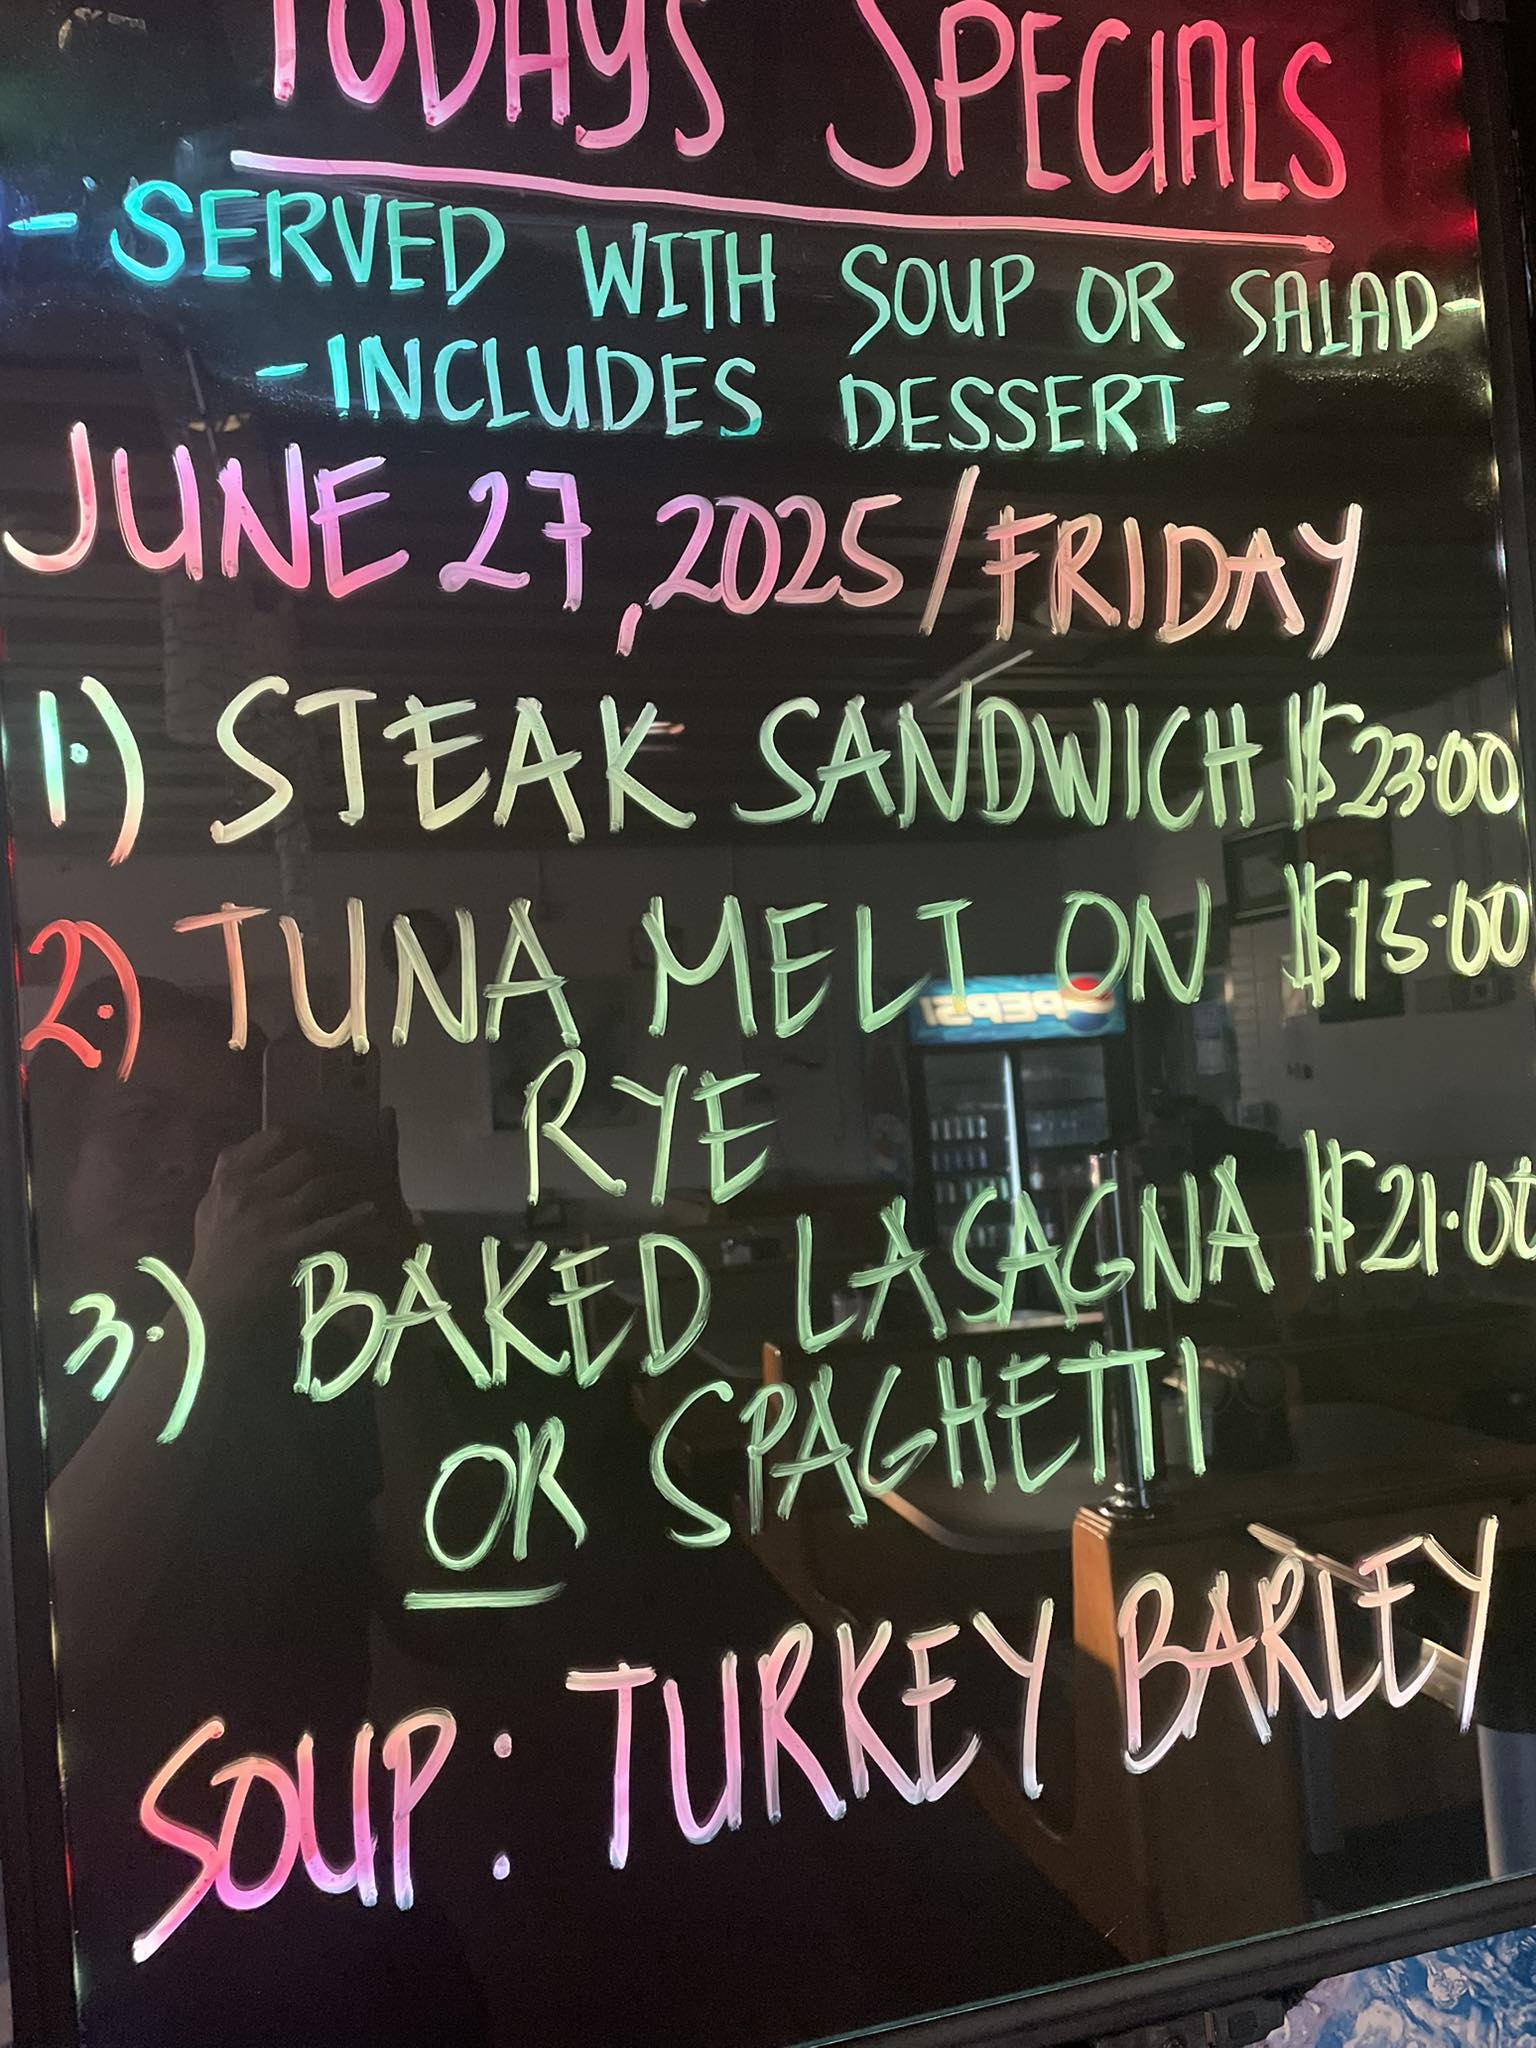 TODAYS SPECIALS
- SERVED WITH SOUP OR SALAD -
- INCLUDES DESSERT -
JUNE 27, 2025 / FRIDAY
1.) STEAK SANDWICH $23.00
2.) TUNA MELT ON $15.00
RYE
3.) BAKED LASAGNA $21.00
OR SPAGHETTI
SOUP: TURKEY BARLEY
PEPSI